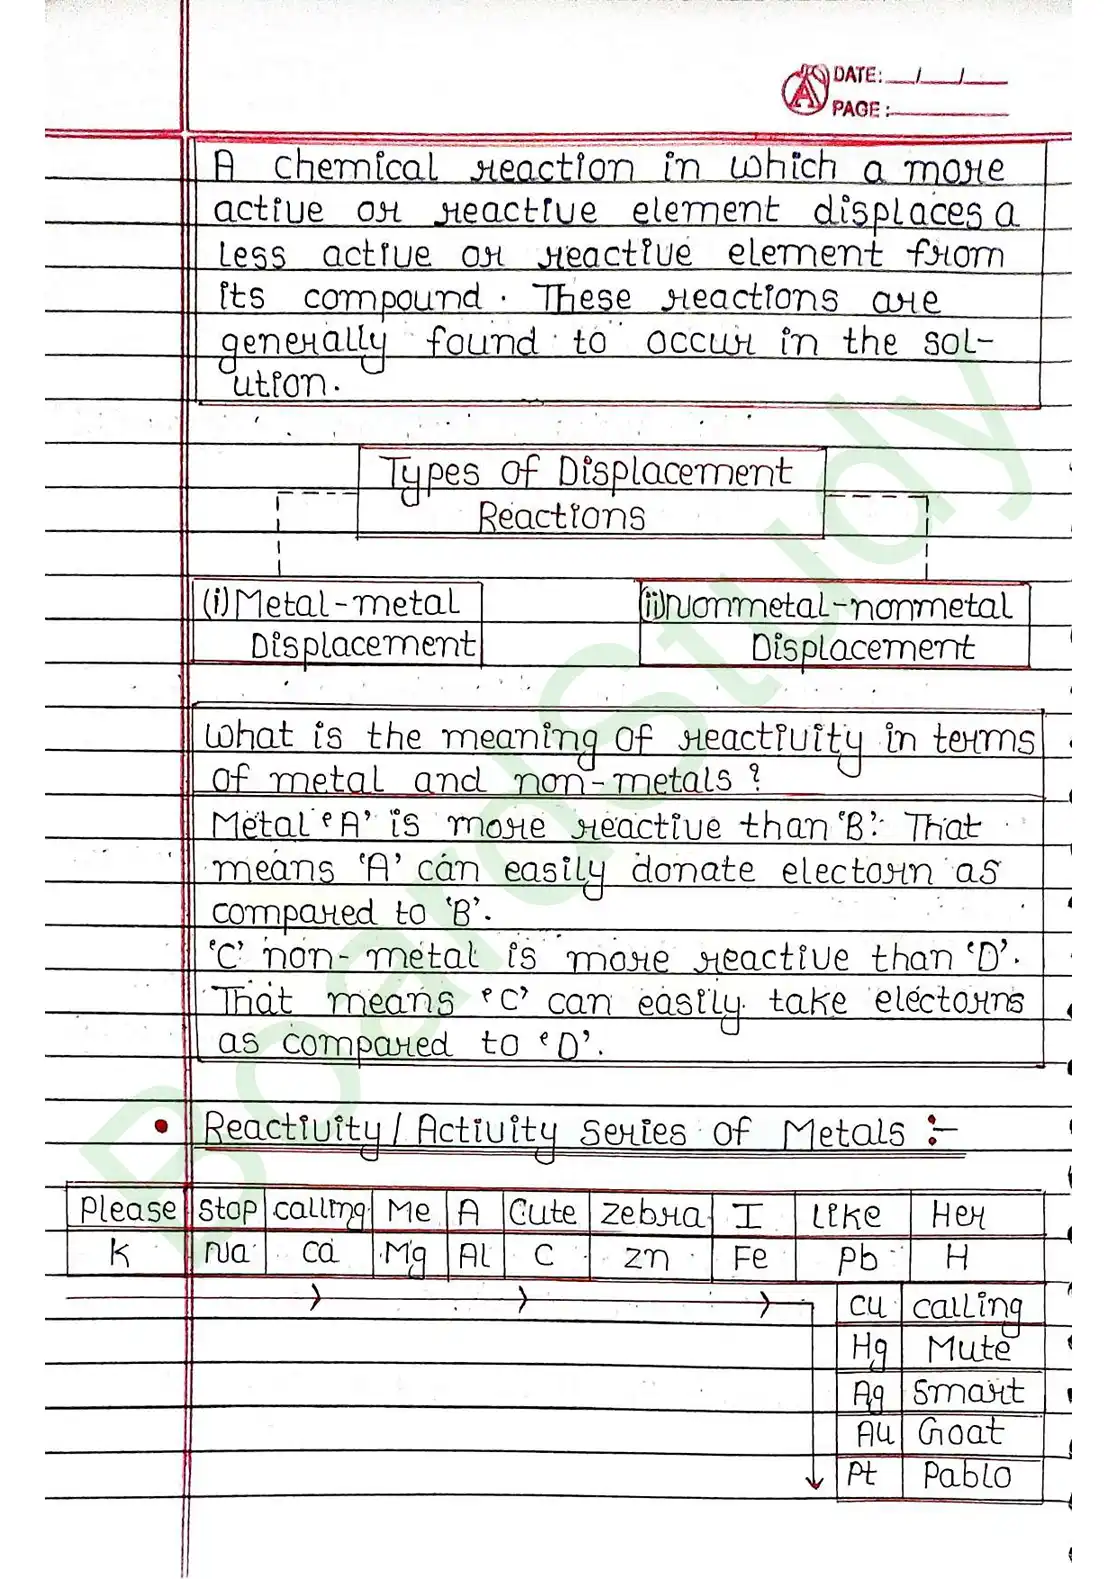 DATE: __/__/__
PAGE:
A chemical reaction in which a more
active or reactive element displaces a
less active or reactive element from
its compound. These reactions are
generally found to occur in the sol-
ution.
Types of Displacement
Reactions
(i) Metal-metal
Displacement
(ii) Nonmetal-nonmetal
Displacement
What is the meaning of reactivity in terms
of metal and non-metals?
Metal 'A' is more reactive than 'B'. That
means 'A' can easily donate electorn as
compared to 'B'.
'C' non-metal is more reactive than 'D'.
That means 'C' can easily take electorns
as compared to 'D'.
• Reactivity / Activity series of Metals :-
Please Stop calling Me A Cute zebra I Like Her
K Na Ca Mg Al C Zn Fe Pb H
Cu calling
Hg Mute
Ag Smart
Au Goat
Pt Pablo
BoardStudy